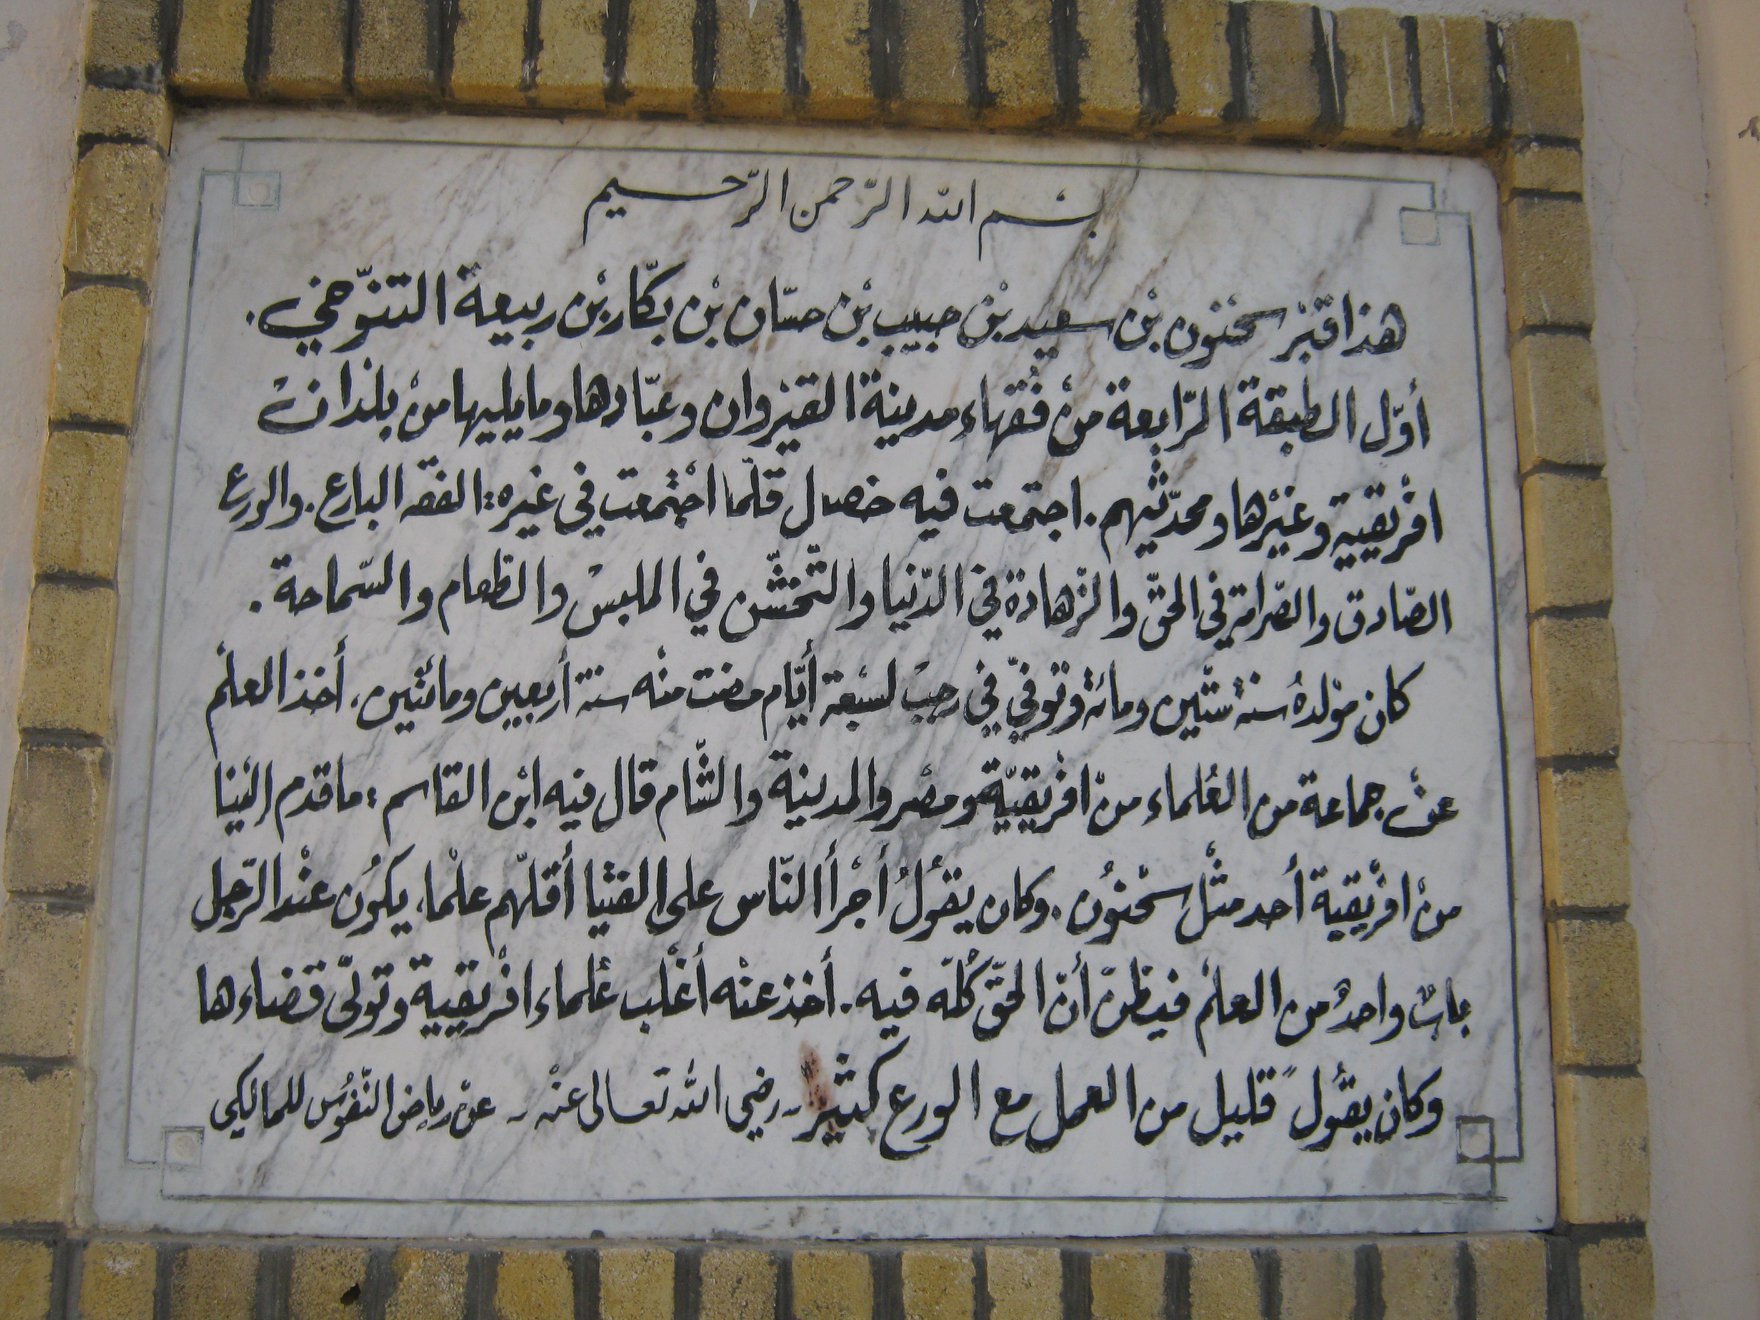 بسم الله الرّحمن الرّحيم
هذا قبْر سحْنون بْن سعيد بْن حبيب بْن حسّان بْن بكّار بْن ربيعة التنّوخي.
أوّل الطبقة الرّابعة منْ فُقهاء مدينة القيْروان وعبّادها وما يليها منْ بلدان
افْريقيية وغيْرها ومحدّثيهم. اجتمعت فيه خصال قلّما اجْتمعت في غيره: الفقه البارع. والورع
الصّادق والصّرامة في الحقّ والزّهادة في الدّنيا والتّخشّن في الملبسْ والطعام والسّماحة.
كان موْلدهُ سنة ستّين ومائة وتوفيّ في رجبْ لسبْعة أيّام مضت منْه سنة أربعين ومائتين. أخذ العلْم
عنْ جماعة من العُلماء منْ افْريقيّة ومصْر والمدينة والشّام قال فيه ابْن القاسم: ما قدم اليْنا
منْ افْريقية أحد مثْل سحْنوُن. وكان يقوُلُ أجْرأ النّاس على الفتْيا أقلّهم علْما، يكوُن عنْد الرّجل
بابٌ واحدُ من العلْم فيظنّ أنّ الحقّ كُلّه فيه. أخذ عنْه أغْلب عُلماء افْريقيية وتولّى قضاءها
وكان يقوُل" قليل من العمل مع الورع كثيْر - رضي الله تعالى عنْه - عنْ رياض النّفوُس للمالكي